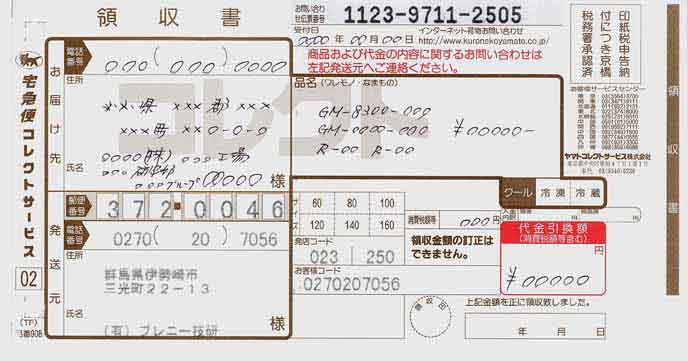 領収書
お問い合せ伝票番号
1123-9711-2505
受付日 0000年00月00日
インターネット荷物お問い合わせ
http://www.kuronekoyamato.co.jp/
商品および代金の内容に関するお問い合わせは
左記発送元へご連絡ください。
印紙税申告納
付につき京橋
税務署承認済
領収書
宅急便コレクトサービス
02
(TF)
お届け先
電話番号 000(000)0000
コレクト
住所
××県 ×××郡×××
×××町 ××0-0-0
0000(株) 000工場
氏名
様
品名(ワレモノ・なまもの)
GM-8300-000
GM-0000-000
R-00 R-00
¥00000-
お客様サービスセンター
ヤマトコレクトサービス株式会社
クール 冷凍 冷蔵
郵便番号 372-0046
発送元
電話番号 0270(20)7056
住所
群馬県伊勢崎市
三光町22-13
氏名
(有)ブレニー技研
様
サイズ
60 80 100
120 140 160
発店コード
023 250
お客様コード
0270207056
消費税額等 000円
領収金額の訂正は
できません。
代金引換額
(消費税額等含む)
円
¥00000
領収印
上記金額を正に領収致しました。
年 月 日